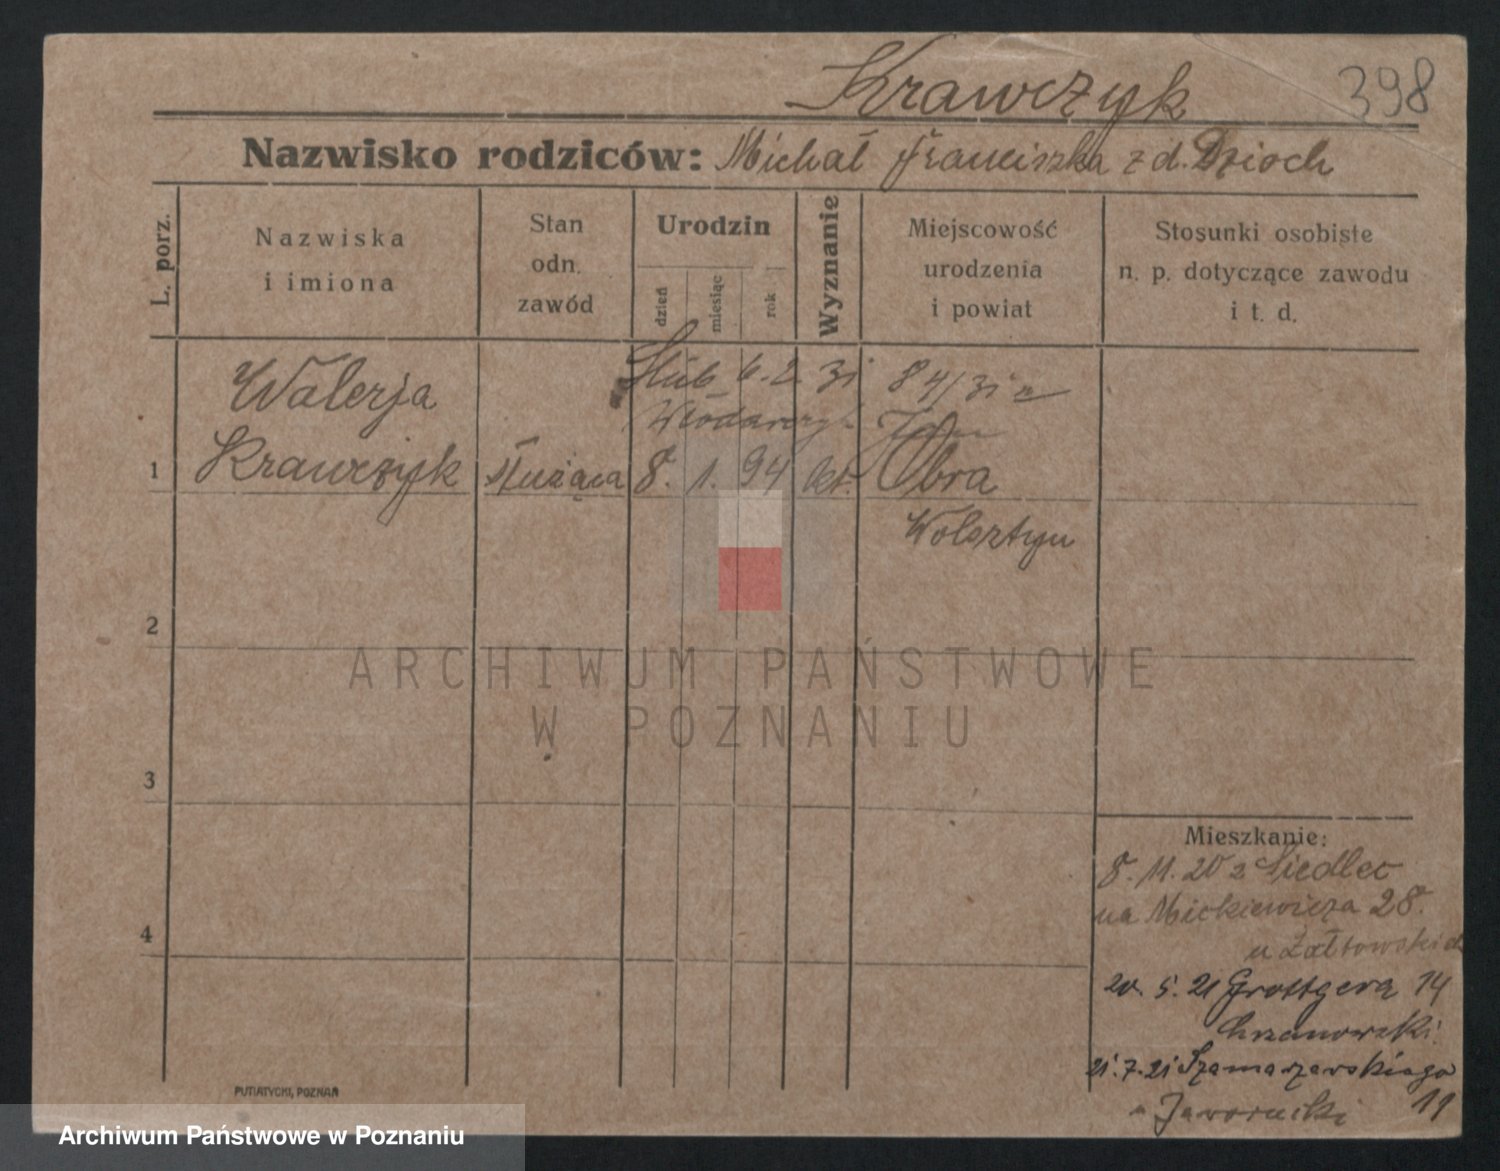 Krawczyk 398
Nazwisko rodziców: Michał Franciszka z d. Dzioch
L. porz.
Nazwiska
i imiona
Stan
odn.
zawód
Urodzin
dzień
miesiąc
rok
Wyznanie
Miejscowość
urodzenia
i powiat
Stosunki osobiste
n. p. dotyczące zawodu
i t. d.
Ślub 6. 2. 31 84/31
Walerja
Włodarczyk
1 Krawczyk służąca 8. 1. 94 kt. Obra
Wolsztyn
2
3
4
Mieszkanie:
8. 11. 20 z Siedlec
na Mickiewicza 28.
u Żółtowskich
20. 5. 21 Grottgera 14
21. 7. 21 Szamarzewskiego
19
u Jaworucki
PUTIATYCKI, POZNAŃ
ARCHIWUM PAŃSTWOWE
W POZNANIU
Archiwum Państwowe w Poznaniu